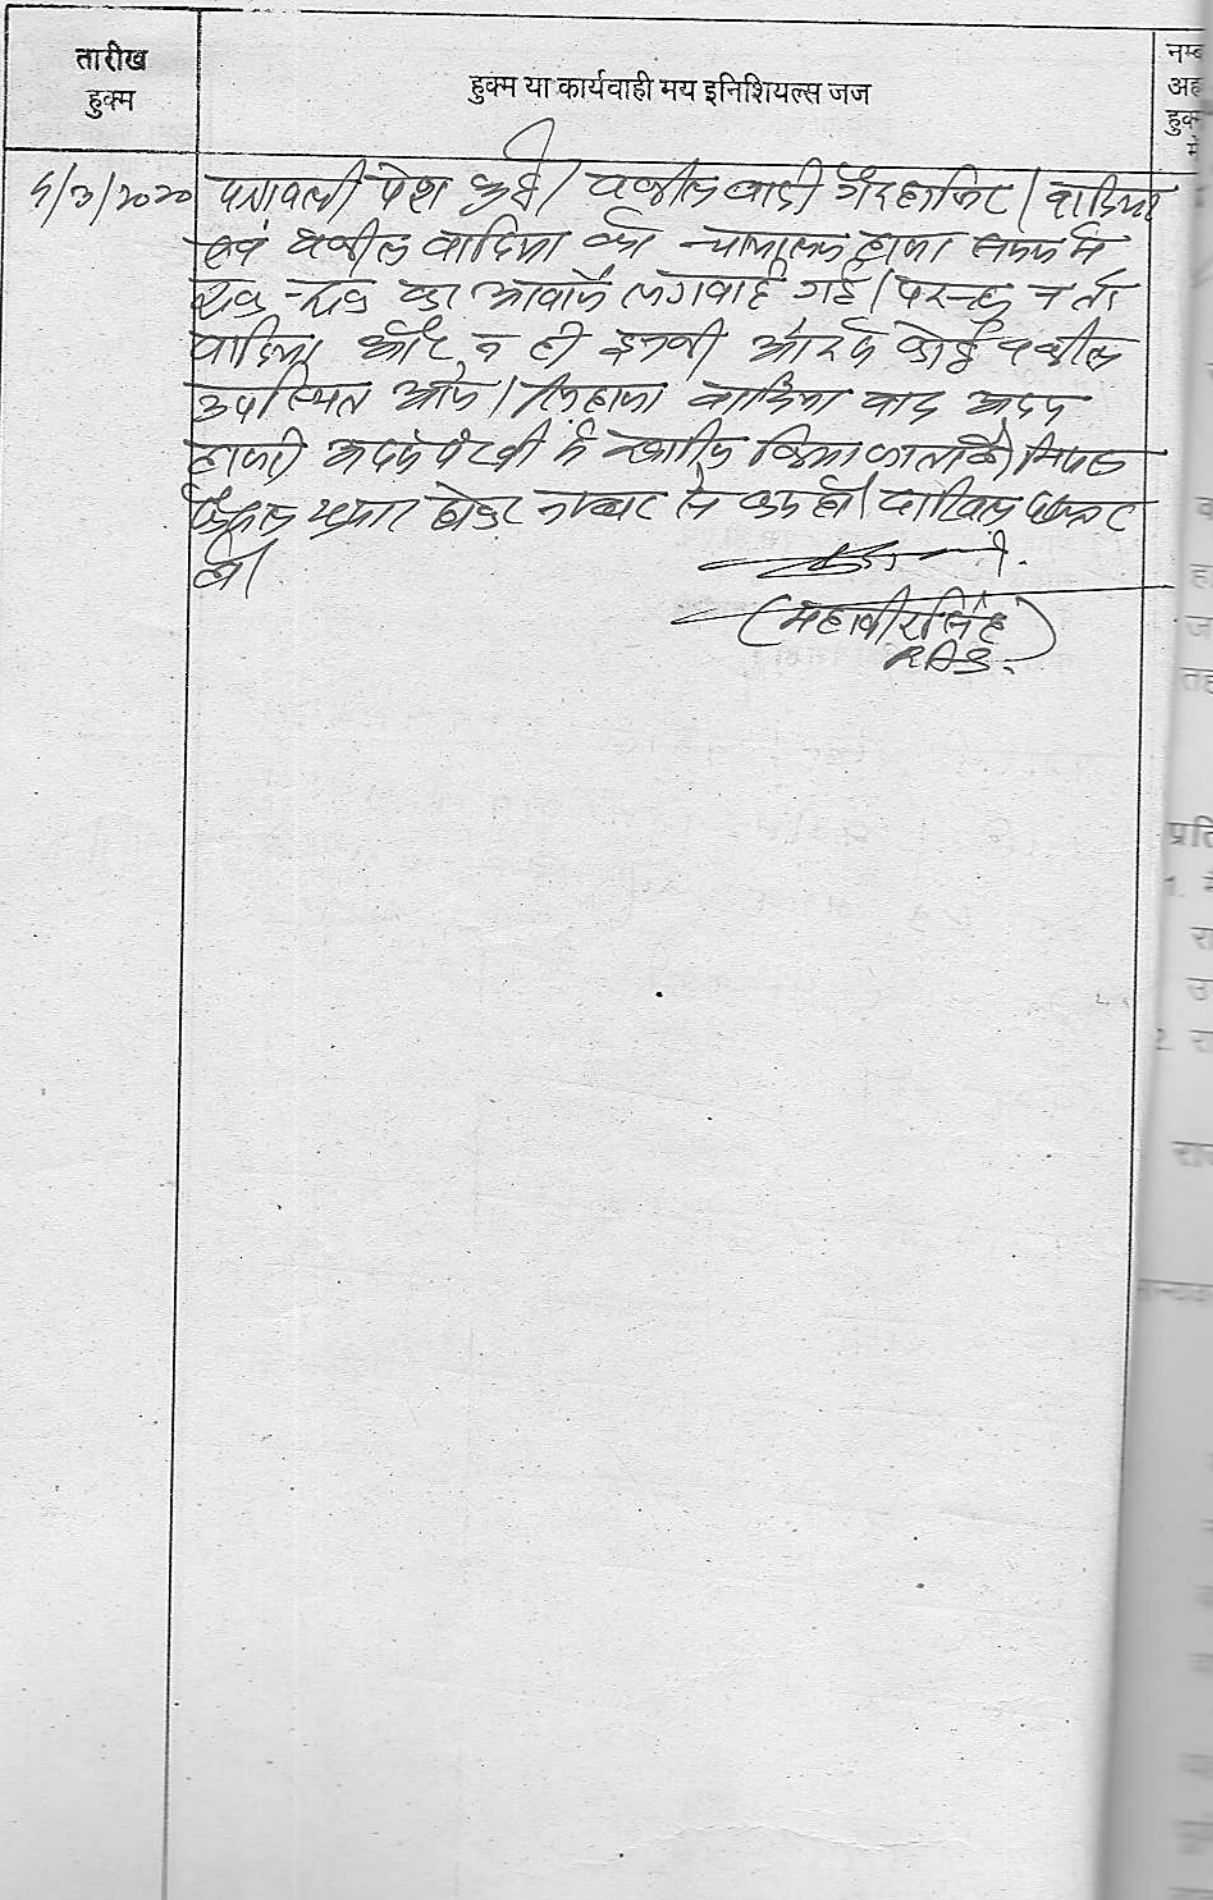 तारीख
हुक्म
हुक्म या कार्यवाही मय इनिशियल्स जज
नम्ब
अह
हुक्म
में
5/3/2020 पत्रावली पेश हुई। वकील वादी गैरहाजिर। वादिया
एवं वकील वादिया को न्यायालय हाजा समय में
रुक-रुक कर आवाजें लगवाई गई। परन्तु न तो
वादिया और न ही इनकी ओर से कोई वकील
उपस्थित आये। लिहाजा वादिया वाद अदम
हाजरी अदम पैरवी में खारिज किया जाता है।
फैसल शुमार होकर नम्बर से कम हो। दाखिल दफ्तर
हो।
(महावीर सिंह)
RAS.
प्रति
1.
रा
उ
2. रा